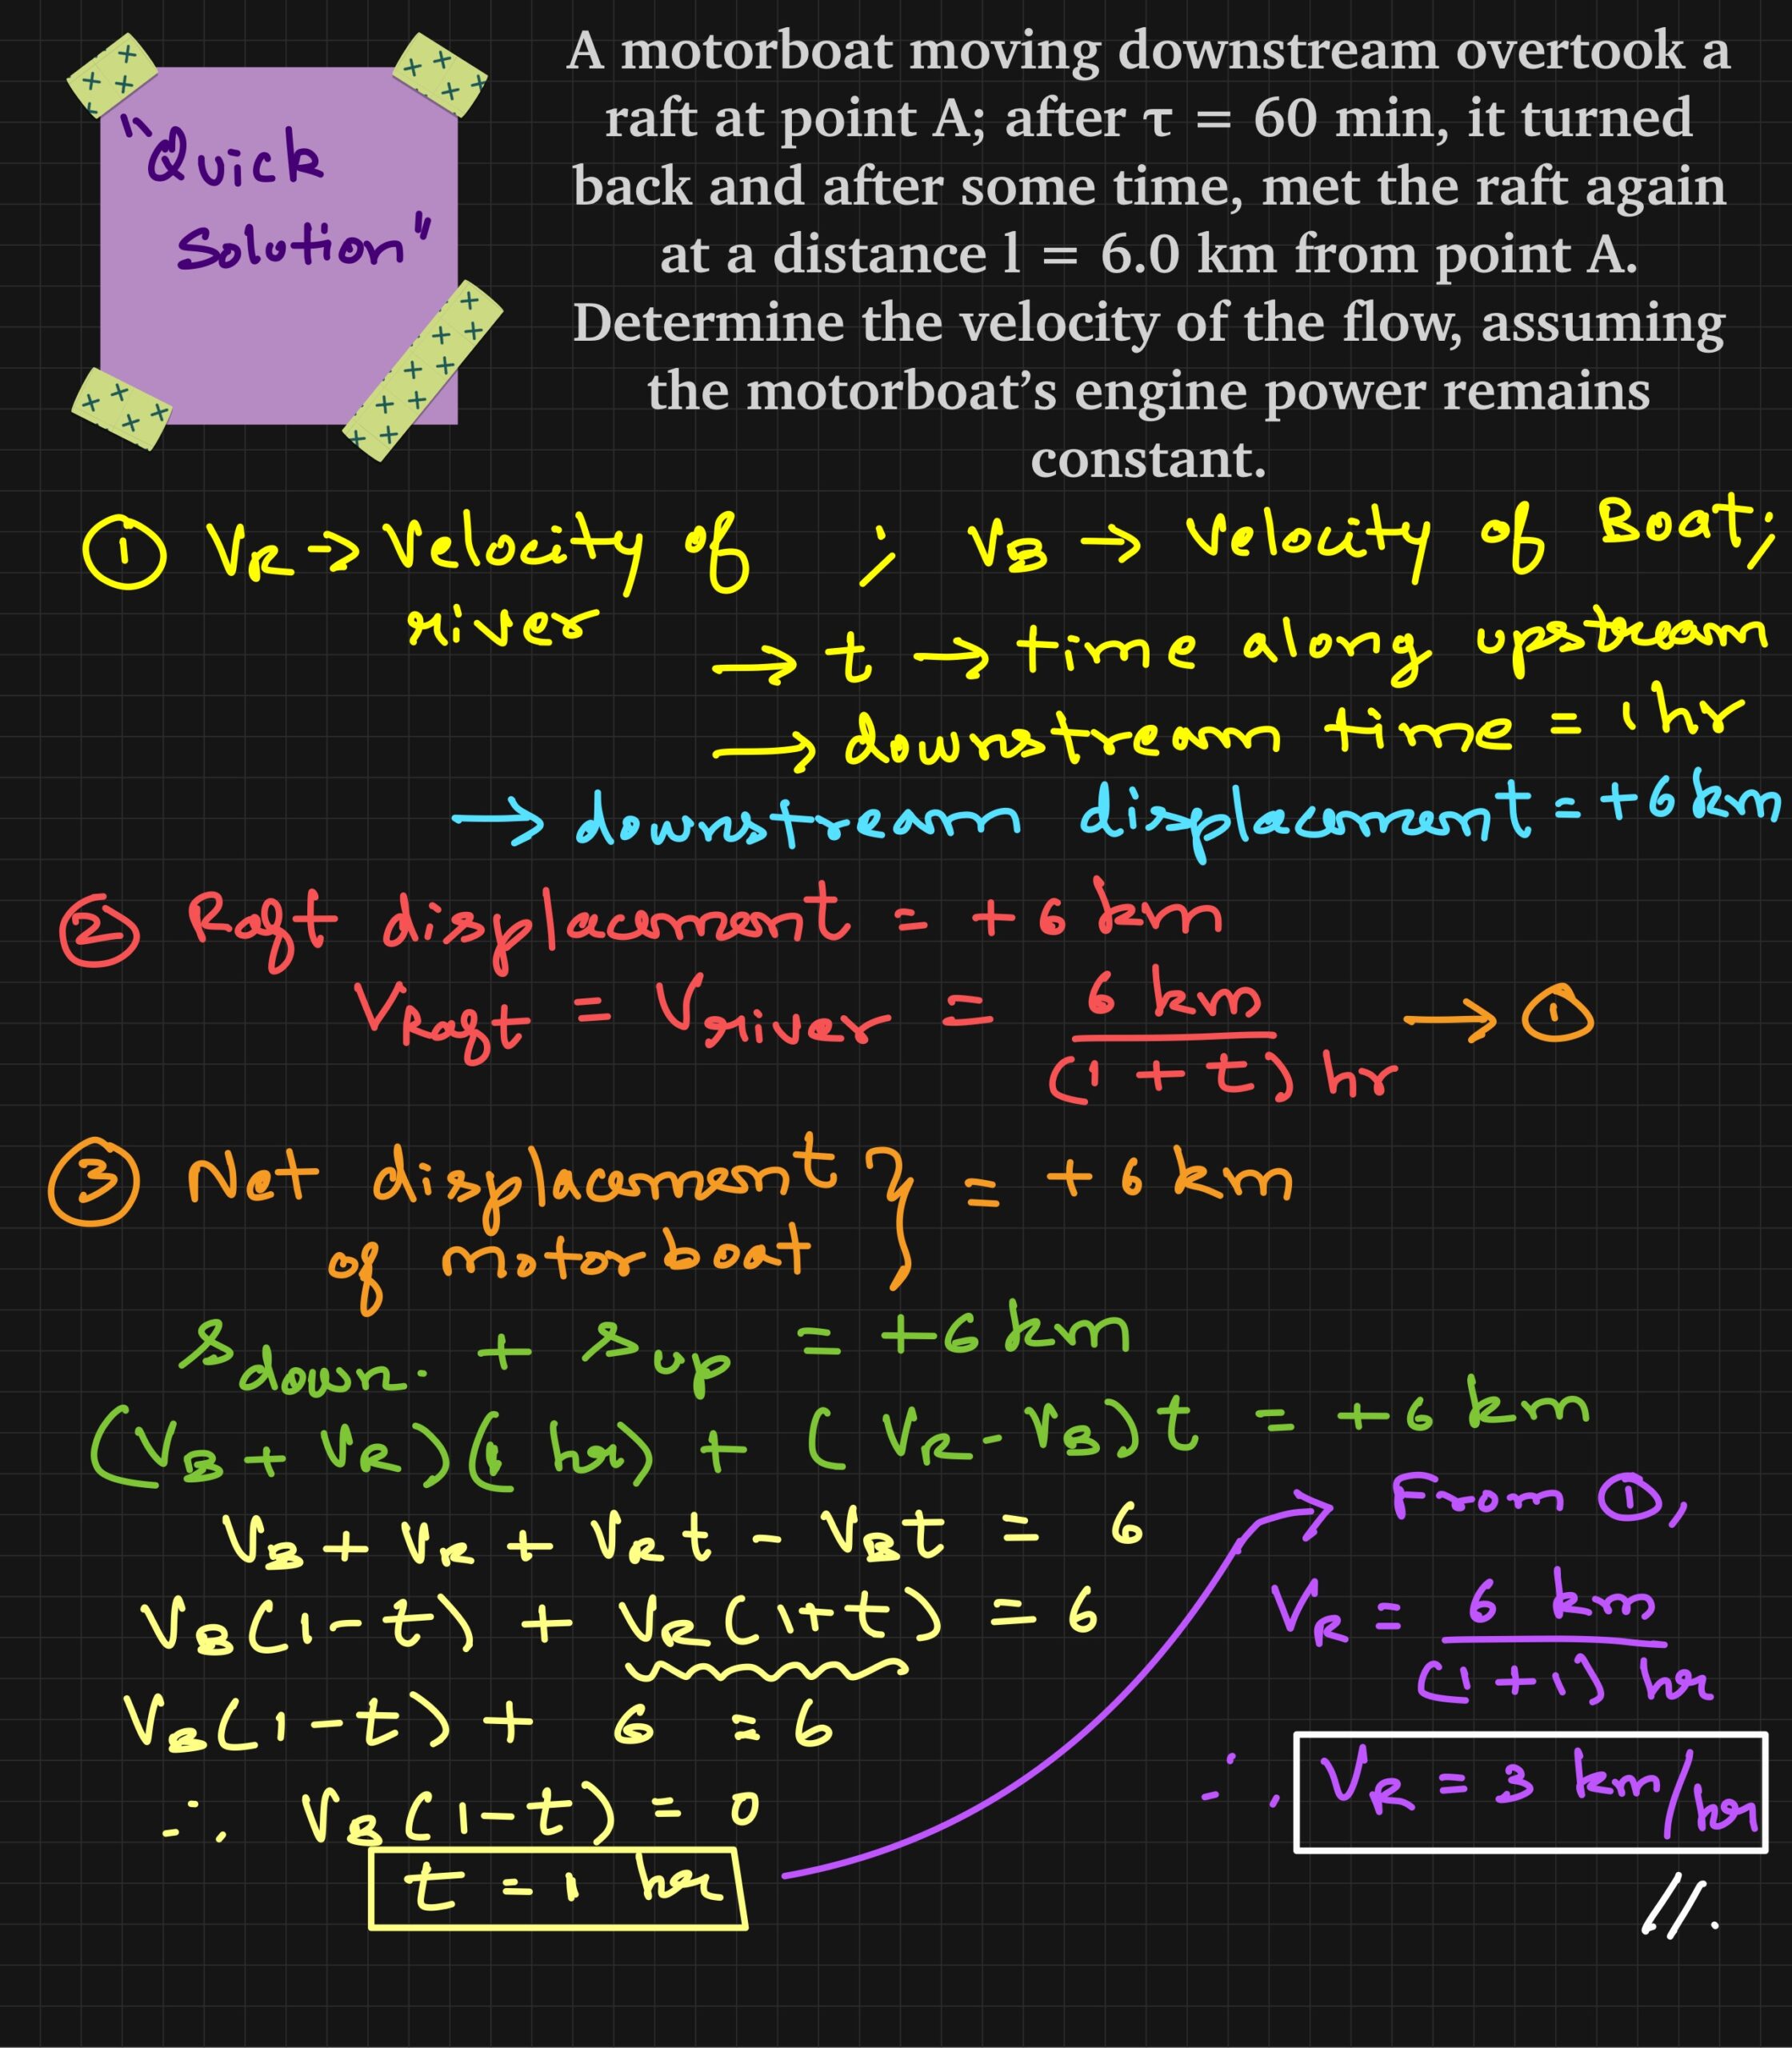 "Quick
Solution"
A motorboat moving downstream overtook a
raft at point A; after τ = 60 min, it turned
back and after some time, met the raft again
at a distance l = 6.0 km from point A.
Determine the velocity of the flow, assuming
the motorboat's engine power remains
constant.
① V_R → Velocity of river ; V_B → Velocity of Boat;
→ t → time along upstream
→ downstream time = 1 hr
→ downstream displacement = +6 km
② Raft displacement = +6 km
V_Raft = V_river = 6 km / (1 + t) hr → ①
③ Net displacement of motorboat } = +6 km
s_down. + s_up = +6 km
(V_B + V_R)(1 hr) + (V_R - V_B)t = +6 km
V_B + V_R + V_R t - V_B t = 6
V_B(1-t) + V_R(1+t) = 6
V_B(1-t) + 6 = 6
∴ V_B(1-t) = 0
t = 1 hr
From ①,
V_R = 6 km / (1+1) hr
∴ V_R = 3 km/hr
//.